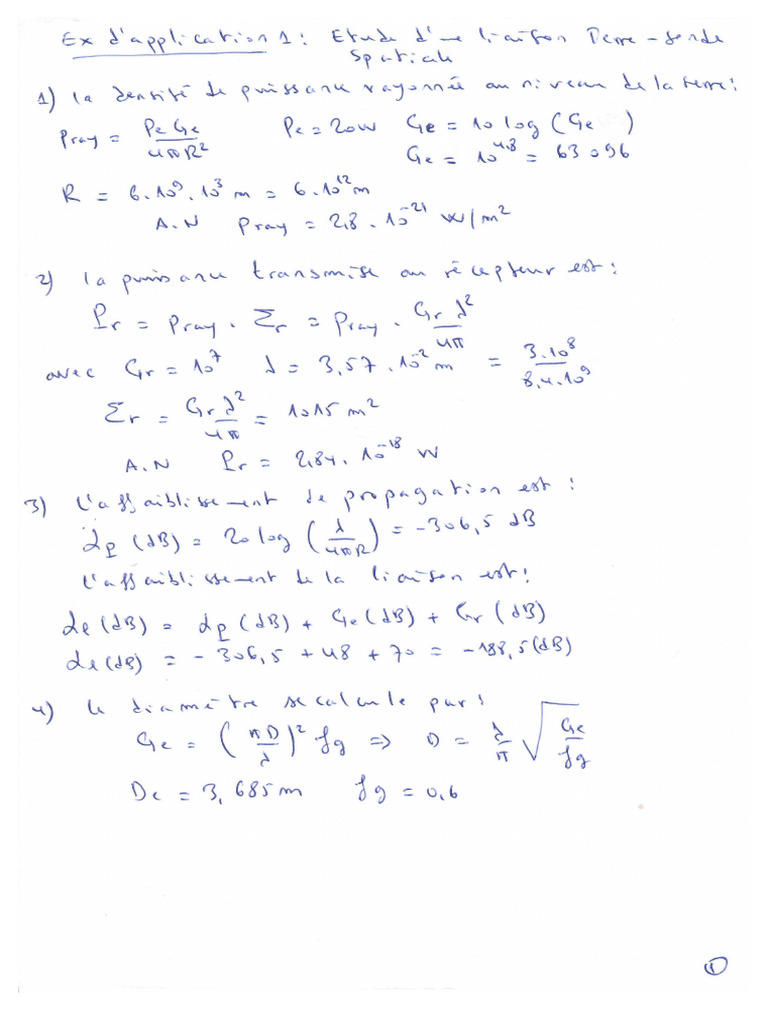 Ex d'application 1 : Etude d'une liaison Terre - sonde
Spatiale
1) la densité de puissance rayonnée au niveau de la terre :
Pray = PeGe / 4πR² Pe = 20W Ge = 10 log (Ge )
Ge = 10^4,8 = 63096
R = 6.10⁹.10³ m = 6.10¹² m
A.N Pray = 2,8 . 10⁻²¹ W/m²
2) la puissance transmise au récepteur est :
Pr = Pray . Σr = Pray . Grλ² / 4π
avec Gr = 10⁷ λ = 3,57 . 10⁻² m = 3.10⁸ / 8,4.10⁹
Σr = Grλ² / 4π = 1015 m²
A.N Pr = 2,84 . 10⁻¹⁸ W
3) L'affaiblissement de propagation est :
αp (dB) = 20 log (λ / 4πR) = -306,5 dB
L'affaiblissement de la liaison est :
αl (dB) = αp (dB) + Ge (dB) + Gr (dB)
αl (dB) = - 306,5 + 48 + 70 = -188,5 (dB)
4) le diamètre se calcule par :
Ge = (πD / λ)² fg => D = λ/π √(Ge / fg)
De = 3,685m fg = 0,6
①